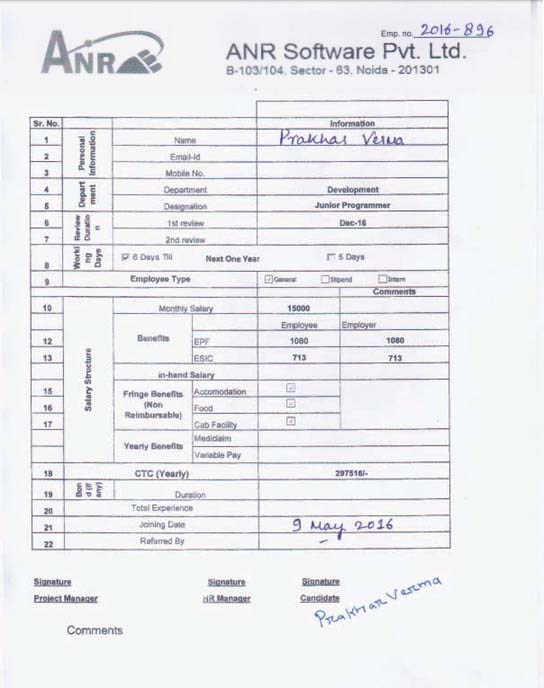 Emp. no. 2016-896
ANR
ANR Software Pvt. Ltd.
B-103/104, Sector - 63, Noida - 201301
Sr. No. Information
1 Personal Information Name Prakhar Verma
2 Email-Id
3 Mobile No.
4 Depart ment Department Development
5 Designation Junior Programmer
6 Review Duratio n 1st review Dec-16
7 2nd review
8 Worki ng Days 6 Days Till Next One Year 5 Days
9 Employee Type General Stipend Intern
Comments
10 Salary Structure Monthly Salary 15000
Benefits Employee Employer
12 EPF 1080 1080
13 ESIC 713 713
in-hand Salary
15 Fringe Benefits (Non Reimbursable) Accomodation
16 Food
17 Cab Facility
Yearly Benefits Mediclaim
Variable Pay
18 CTC (Yearly) 297516/-
19 Bon d (if any) Duration
20 Total Experience
21 Joining Date 9 May 2016
22 Referred By -
Signature Signature Signature
Project Manager HR Manager Candidate
Prakhar Verma
Comments